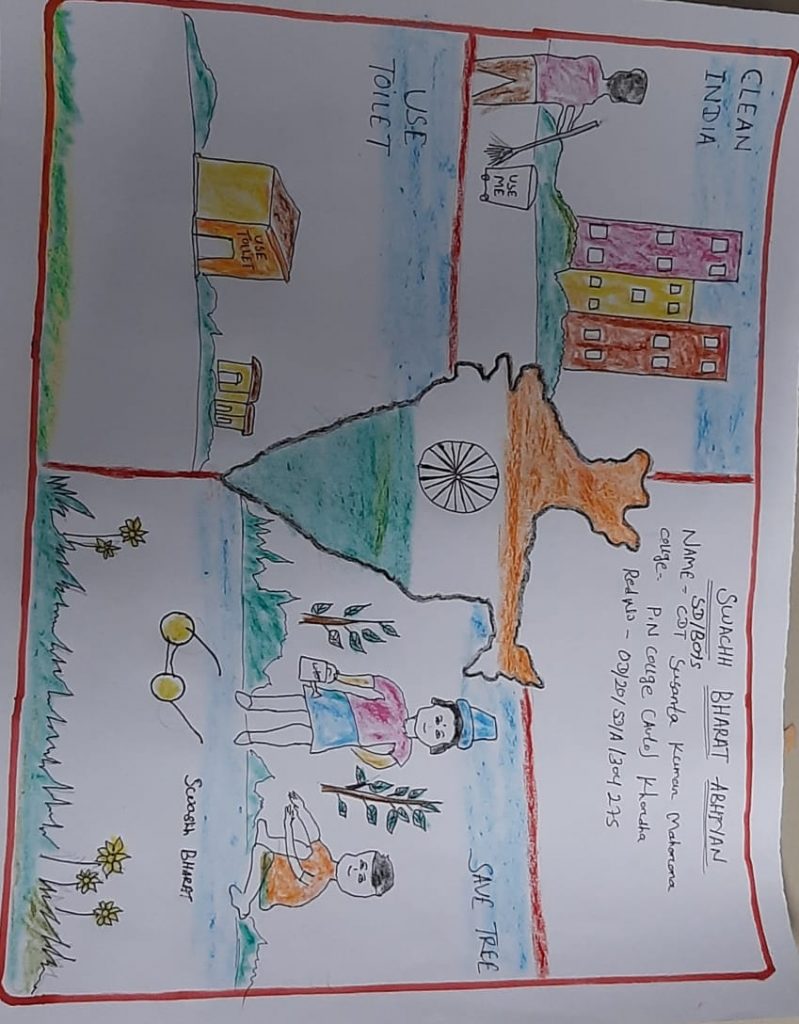 CLEAN
INDIA
USE
ME
USE
TOILET
USE
TOILET
SWACHH BHARAT ABHIYAN
SD/BOYS
NAME - CDT Susanta Kumar Maharana
College - P.N College (Auto) Khordha
Red No - OD/20/SD/A/304275
SAVE TREE
Swachh BHARAT